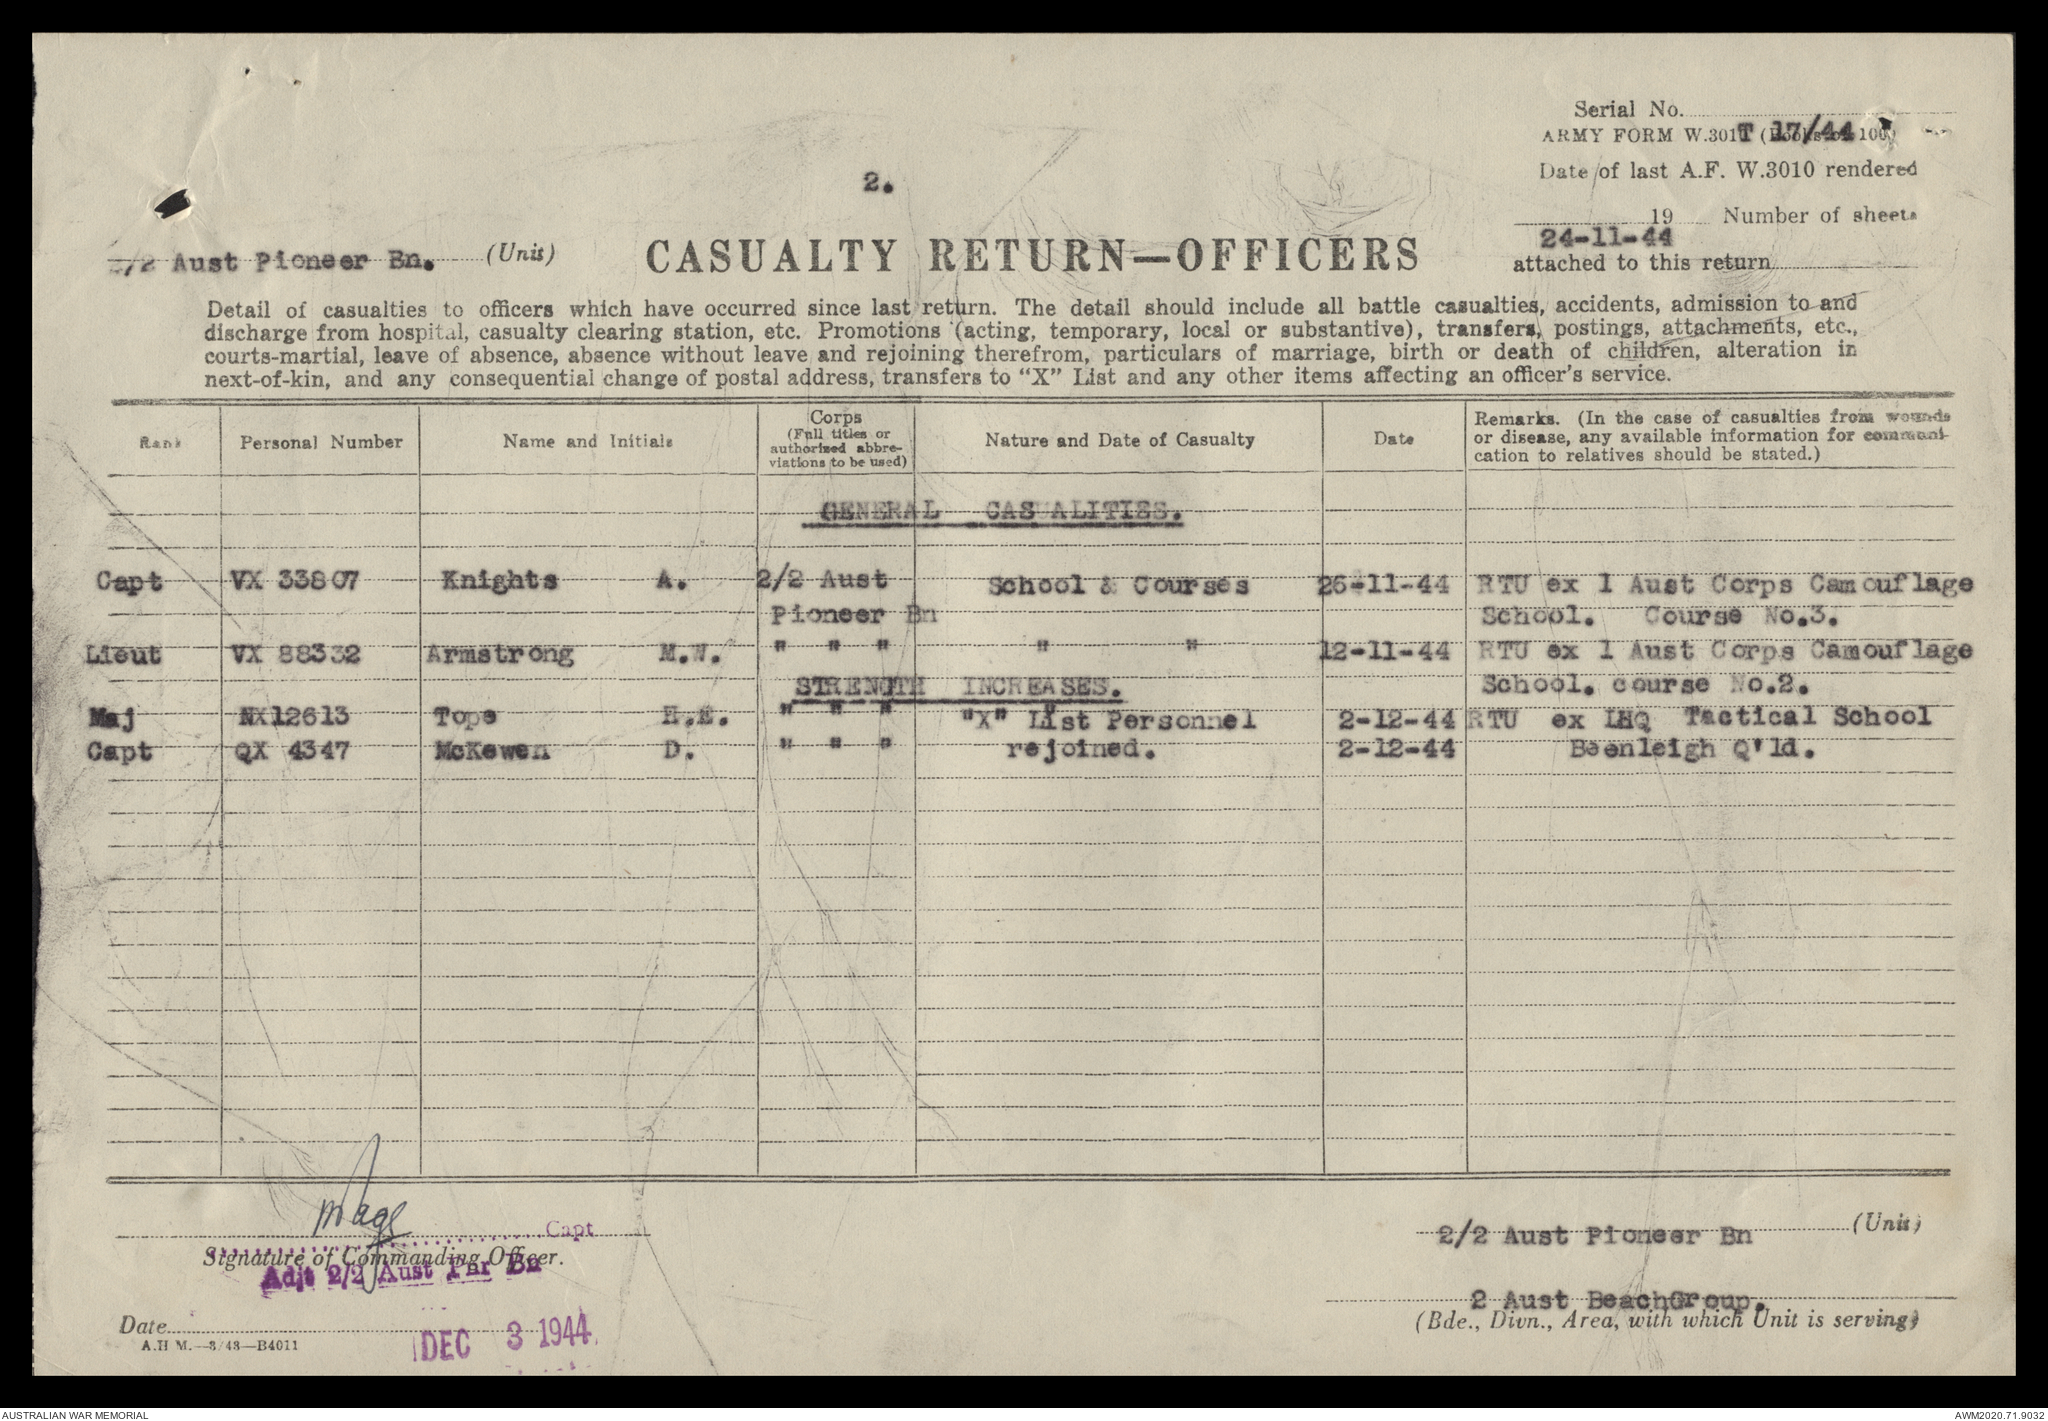 Serial No.
ARMY FORM W.3010 (Books of 100)
T 17/44
Date of last A.F. W.3010 rendered
2.
19 Number of sheets
24-11-44
attached to this return
2/2 Aust Pioneer Bn. (Unit)
CASUALTY RETURN—OFFICERS
Detail of casualties to officers which have occurred since last return. The detail should include all battle casualties, accidents, admission to and
discharge from hospital, casualty clearing station, etc. Promotions (acting, temporary, local or substantive), transfers, postings, attachments, etc.,
courts-martial, leave of absence, absence without leave and rejoining therefrom, particulars of marriage, birth or death of children, alteration in
next-of-kin, and any consequential change of postal address, transfers to "X" List and any other items affecting an officer's service.
Rank Personal Number Name and Initials Corps (Full titles or authorized abbreviations to be used) Nature and Date of Casualty Date Remarks. (In the case of casualties from wounds or disease, any available information for communication to relatives should be stated.)
GENERAL CASUALITIES.
Capt VX 33807 Knights A. 2/2 Aust School & Courses 26-11-44 RTU ex 1 Aust Corps Camouflage
Pioneer Bn School. Course No.3.
Lieut VX 88332 Armstrong M.W. " " " " " 12-11-44 RTU ex 1 Aust Corps Camouflage
STRENGTH INCREASES. School. course No.2.
Maj NX12613 Tope " " " "X" List Personnel 2-12-44 RTU ex LHQ Tactical School
Capt QX 4347 McKewen D. " " " rejoined. 2-12-44 Beenleigh Q'ld.
Capt
Signature of Commanding Officer.
Adjt 2/2 Aust Pnr Bn
2/2 Aust Pioneer Bn (Unit)
2 Aust BeachGroup.
(Bde., Divn., Area, with which Unit is serving)
Date
DEC 3 1944
A.H M.—3/43—B4011
AUSTRALIAN WAR MEMORIAL
AWM2020.71.9032